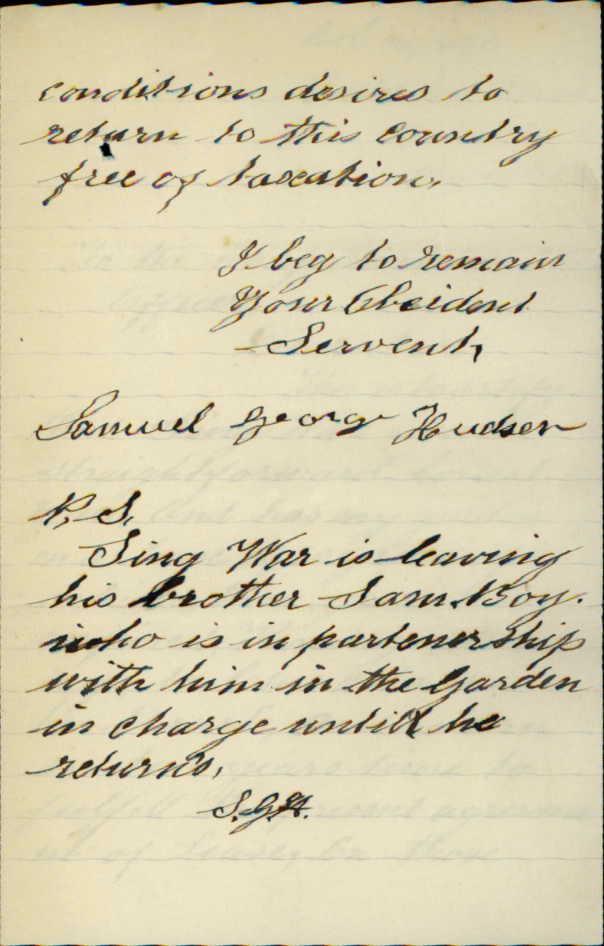 conditions desires to
return to this country
free of taxation,
I beg to remain
Your Obeident
Servent,
Samuel George Hudson
P.S.
Sing War is leaving
his brother Sam Boy.
who is in partenership
with him in the Garden
in charge untill he
returns,
S.G.H.